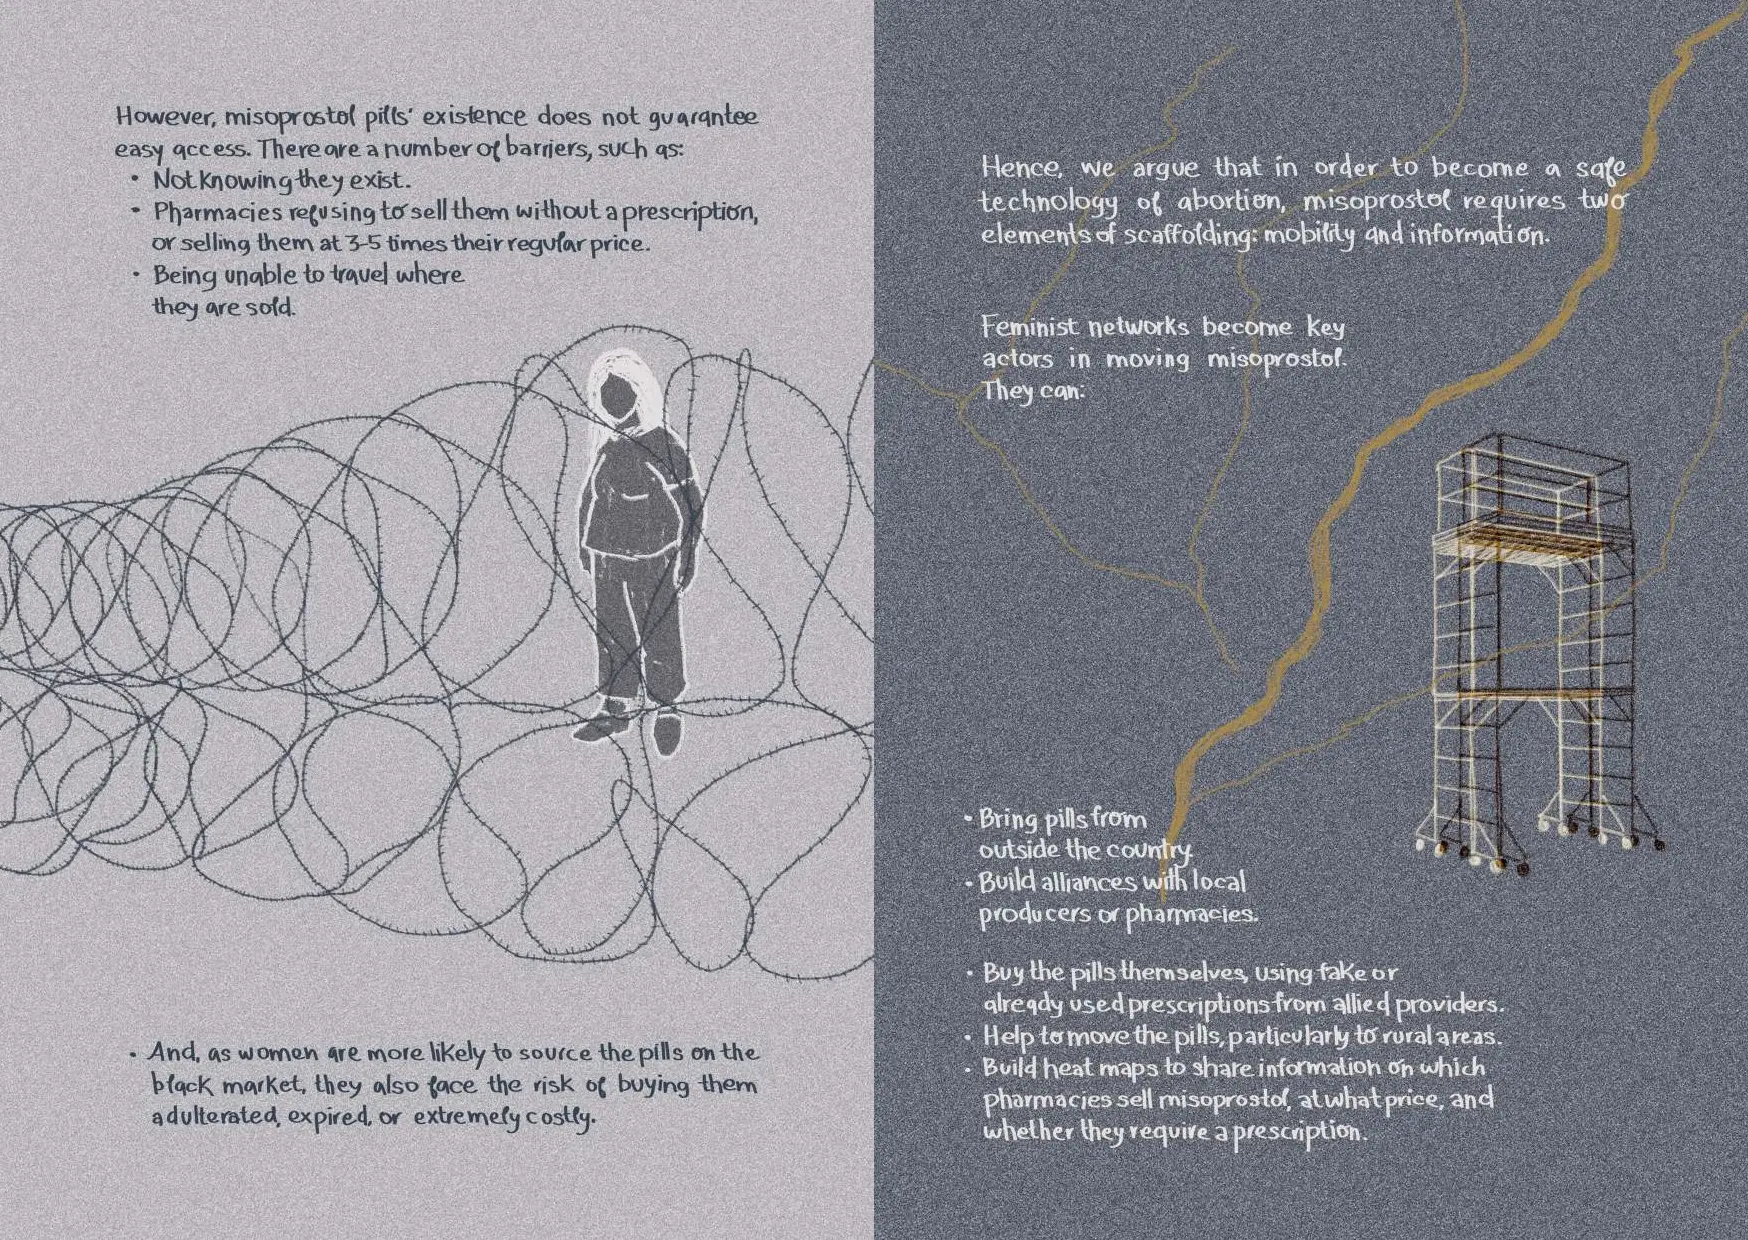 However, misoprostol pills' existence does not guarantee
easy access. There are a number of barriers, such as:
• Not knowing they exist.
• Pharmacies refusing to sell them without a prescription,
or selling them at 3-5 times their regular price.
• Being unable to travel where
they are sold.
• And, as women are more likely to source the pills on the
black market, they also face the risk of buying them
adulterated, expired, or extremely costly.
Hence, we argue that in order to become a safe
technology of abortion, misoprostol requires two
elements of scaffolding: mobility and information.
Feminist networks become key
actors in moving misoprostol.
They can:
• Bring pills from
outside the country.
• Build alliances with local
producers or pharmacies.
• Buy the pills themselves, using fake or
already used prescriptions from allied providers.
• Help to move the pills, particularly to rural areas.
• Build heat maps to share information on which
pharmacies sell misoprostol, at what price, and
whether they require a prescription.